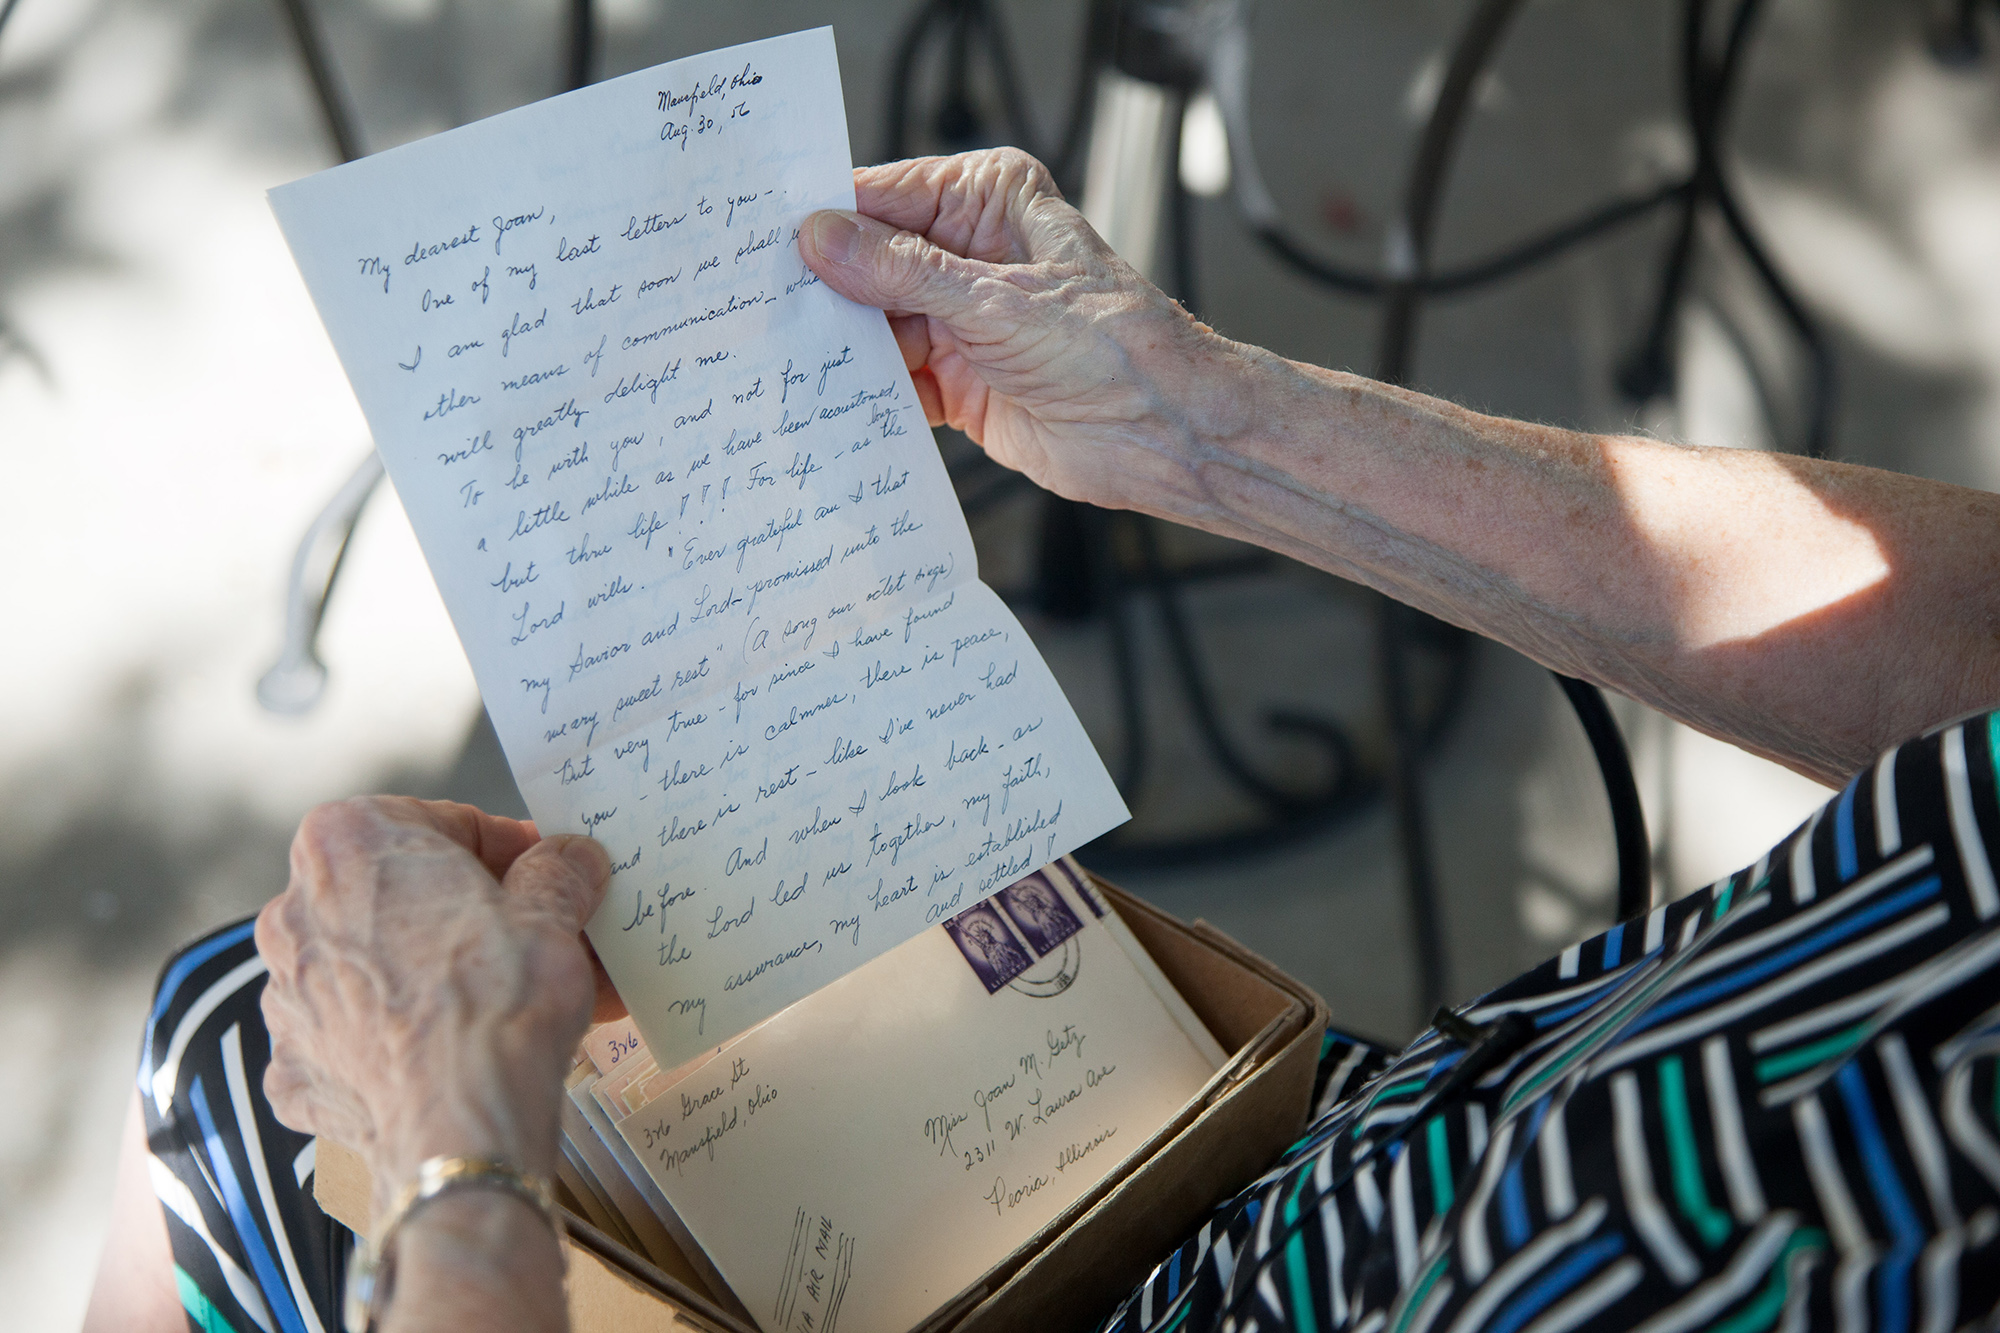 Mansfield, Ohio
Aug. 30, 56
My dearest Joan,
One of my last letters to you -.
I am glad that soon we shall
other means of communication - which
will greatly delight me.
To be with you, and not for just
a little while as we have been accustomed,
but thru life!!! For life - as long - as the
Lord wills. "Ever grateful am I that
my Savior and Lord - promised unto the
weary sweet rest" (A song our octet sings)
But very true - for since I have found
you - there is calmness, there is peace,
and there is rest - like I've never had
before. And when I look back - as
the Lord led us together, my faith,
my assurance, my heart is established
and settled!
LIBERTY
326
326 Grace St
Mansfield, Ohio
Miss Joan M. Getz
2311 W. Laura Ave
Peoria, Illinois
VIA AIR MAIL